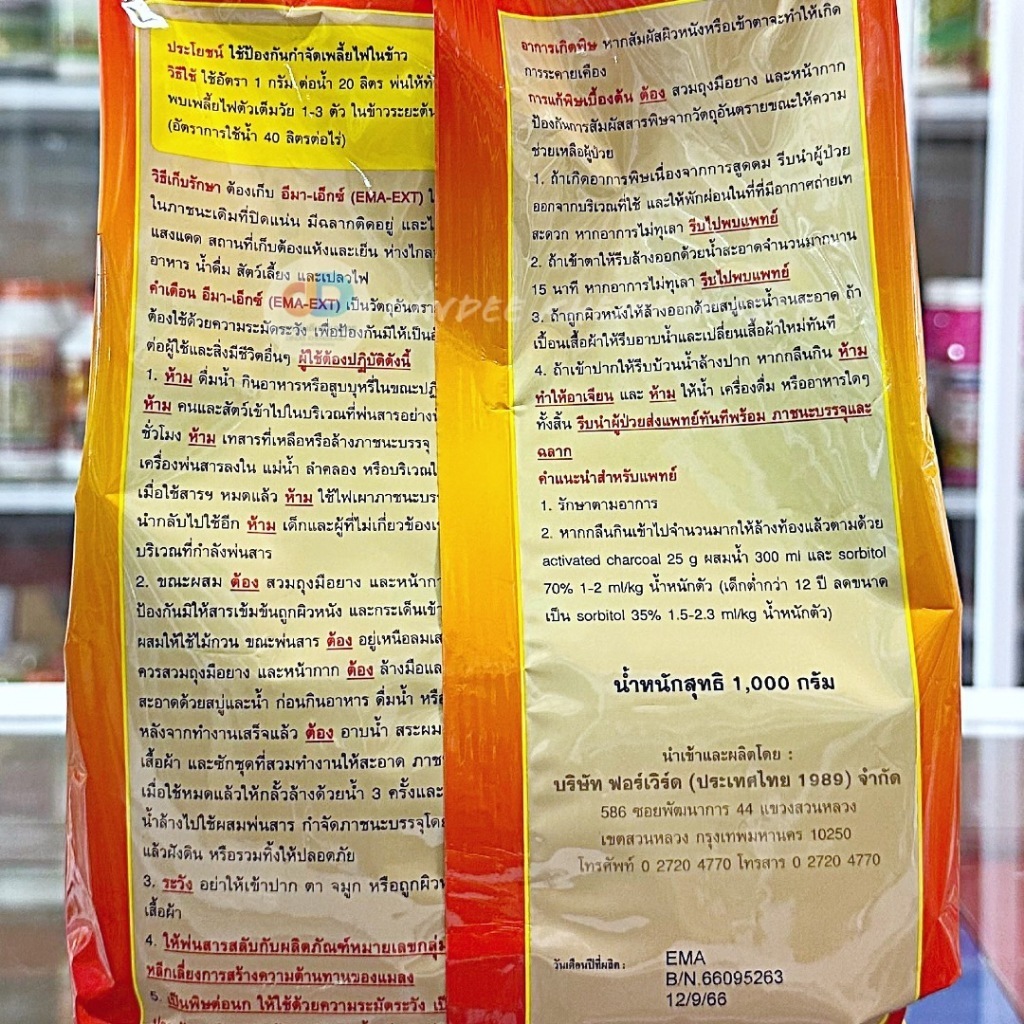 ประโยชน์ ใช้ป้องกันกำจัดเพลี้ยไฟในข้าว
วิธีใช้ ใช้อัตรา 1 กรัม ต่อน้ำ 20 ลิตร พ่นให้ทั่
พบเพลี้ยไฟตัวเต็มวัย 1-3 ตัว ในข้าวระยะต้น
(อัตราการใช้น้ำ 40 ลิตรต่อไร่)
วิธีเก็บรักษา ต้องเก็บ อีมา-เอ็กซ์ (EMA-EXT)
ในภาชนะเดิมที่ปิดแน่น มีฉลากติดอยู่ และ
แสงแดด สถานที่เก็บต้องแห้งและเย็น ห่างไกล
อาหาร น้ำดื่ม สัตว์เลี้ยง และเปลวไฟ
คำเตือน อีมา-เอ็กซ์ (EMA-EXT) เป็นวัตถุอันตรา
ต้องใช้ด้วยความระมัดระวัง เพื่อป้องกันมิให้เป็น
ต่อผู้ใช้และสิ่งมีชีวิตอื่นๆ ผู้ใช้ต้องปฏิบัติดังนี้
1. ห้าม ดื่มน้ำ กินอาหารหรือสูบบุหรี่ในขณะปฏิ
ห้าม คนและสัตว์เข้าไปในบริเวณที่พ่นสารอย่าง
ชั่วโมง ห้าม เทสารที่เหลือหรือล้างภาชนะบรรจุ
เครื่องพ่นสารลงใน แม่น้ำ ลำคลอง หรือบริเวณ
เมื่อใช้สารฯ หมดแล้ว ห้าม ใช้ไฟเผาภาชนะบร
นำกลับไปใช้อีก ห้าม เด็กและผู้ที่ไม่เกี่ยวข้อง
บริเวณที่กำลังพ่นสาร
2. ขณะผสม ต้อง สวมถุงมือยาง และหน้ากา
ป้องกันมิให้สารเข้มข้นถูกผิวหนัง และกระเด็นเข้า
ผสมให้ใช้ไม้กวน ขณะพ่นสาร ต้อง อยู่เหนือลมเส
ควรสวมถุงมือยาง และหน้ากาก ต้อง ล้างมือแล
สะอาดด้วยสบู่และน้ำ ก่อนกินอาหาร ดื่มน้ำ หรื
หลังจากทำงานเสร็จแล้ว ต้อง อาบน้ำ สระผม
เสื้อผ้า และซักชุดที่สวมทำงานให้สะอาด ภาช
เมื่อใช้หมดแล้วให้กลั้วล้างด้วยน้ำ 3 ครั้งและ
น้ำล้างไปใช้ผสมพ่นสาร กำจัดภาชนะบรรจุโดย
แล้วฝังดิน หรือรวมทิ้งให้ปลอดภัย
3. ระวัง อย่าให้เข้าปาก ตา จมูก หรือถูกผิวห
เสื้อผ้า
4. ให้พ่นสารสลับกับผลิตภัณฑ์หมายเลขกลุ่ม
หลีกเลี่ยงการสร้างความต้านทานของแมลง
5. เป็นพิษต่อนก ให้ใช้ด้วยความระมัดระวัง เป็
อาการเกิดพิษ หากสัมผัสผิวหนังหรือเข้าตาจะทำให้เกิด
การระคายเคือง
การแก้พิษเบื้องต้น ต้อง สวมถุงมือยาง และหน้ากาก
ป้องกันการสัมผัสสารพิษจากวัตถุอันตรายขณะให้ความ
ช่วยเหลือผู้ป่วย
1. ถ้าเกิดอาการพิษเนื่องจากการสูดดม รีบนำผู้ป่วย
ออกจากบริเวณที่ใช้ และให้พักผ่อนในที่ที่มีอากาศถ่ายเท
สะดวก หากอาการไม่ทุเลา รีบไปพบแพทย์
2. ถ้าเข้าตาให้รีบล้างออกด้วยน้ำสะอาดจำนวนมากนาน
15 นาที หากอาการไม่ทุเลา รีบไปพบแพทย์
3. ถ้าถูกผิวหนังให้ล้างออกด้วยสบู่และน้ำจนสะอาด ถ้า
เปื้อนเสื้อผ้าให้รีบอาบน้ำและเปลี่ยนเสื้อผ้าใหม่ทันที
4. ถ้าเข้าปากให้รีบบ้วนน้ำล้างปาก หากกลืนกิน ห้าม
ทำให้อาเจียน และ ห้าม ให้น้ำ เครื่องดื่ม หรืออาหารใดๆ
ทั้งสิ้น รีบนำผู้ป่วยส่งแพทย์ทันทีพร้อม ภาชนะบรรจุและ
ฉลาก
คำแนะนำสำหรับแพทย์
1. รักษาตามอาการ
2. หากกลืนกินเข้าไปจำนวนมากให้ล้างท้องแล้วตามด้วย
activated charcoal 25 g ผสมน้ำ 300 ml และ sorbitol
70% 1-2 ml/kg น้ำหนักตัว (เด็กต่ำกว่า 12 ปี ลดขนาด
เป็น sorbitol 35% 1.5-2.3 ml/kg น้ำหนักตัว)
น้ำหนักสุทธิ 1,000 กรัม
นำเข้าและผลิตโดย :
บริษัท ฟอร์เวิร์ด (ประเทศไทย 1989) จำกัด
586 ซอยพัฒนาการ 44 แขวงสวนหลวง
เขตสวนหลวง กรุงเทพมหานคร 10250
โทรศัพท์ 0 2720 4770 โทรสาร 0 2720 4770
วันเดือนปีที่ผลิต :
EMA
B/N.66095263
12/9/66